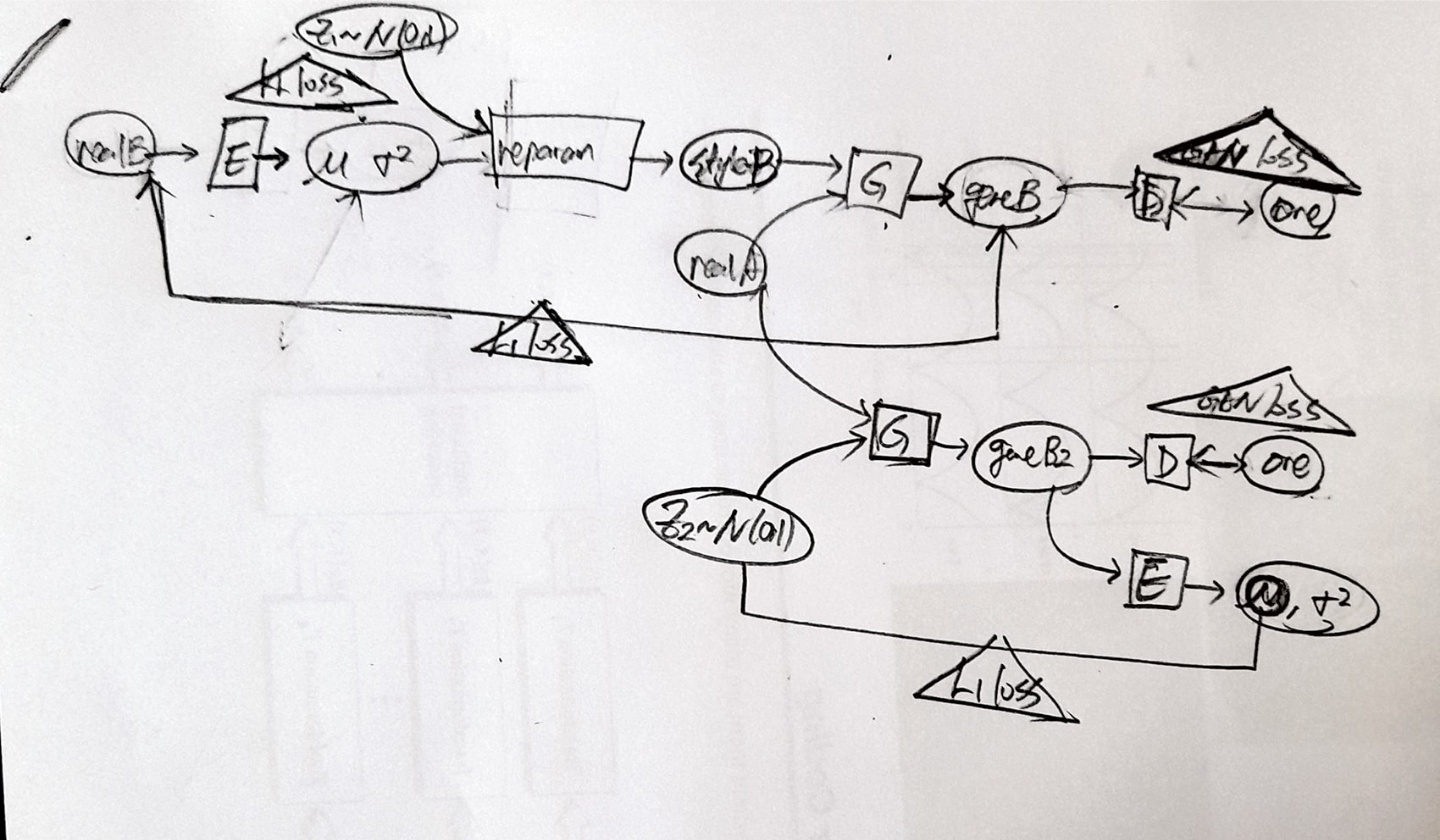 Z₁~N(0,1)
KL loss
realB
E
μ σ²
reparam
styleB
G
geneB
D
GAN loss
one
realA
L1 loss
G
geneB2
D
GAN loss
one
Z₂~N(0,1)
E
μ, σ²
L1 loss